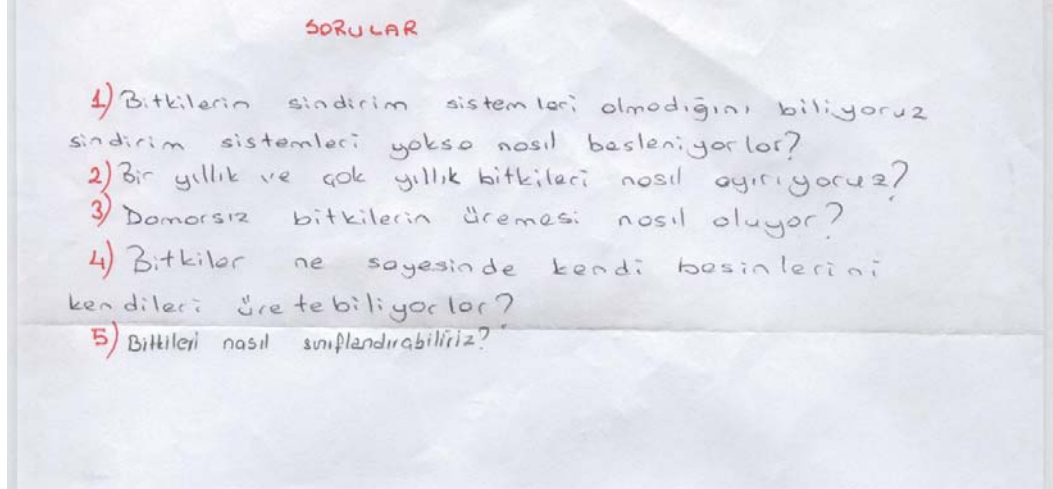 SORULAR
1) Bitkilerin sindirim sistemleri olmadığını biliyoruz
sindirim sistemleri yoksa nasıl besleniyorlar?
2) Bir yıllık ve çok yıllık bitkileri nasıl ayırıyoruz?
3) Damarsız bitkilerin üremesi nasıl oluyor?
4) Bitkiler ne sayesinde kendi besinlerini
kendileri üretebiliyorlar?
5) Bitkileri nasıl sınıflandırabiliriz?